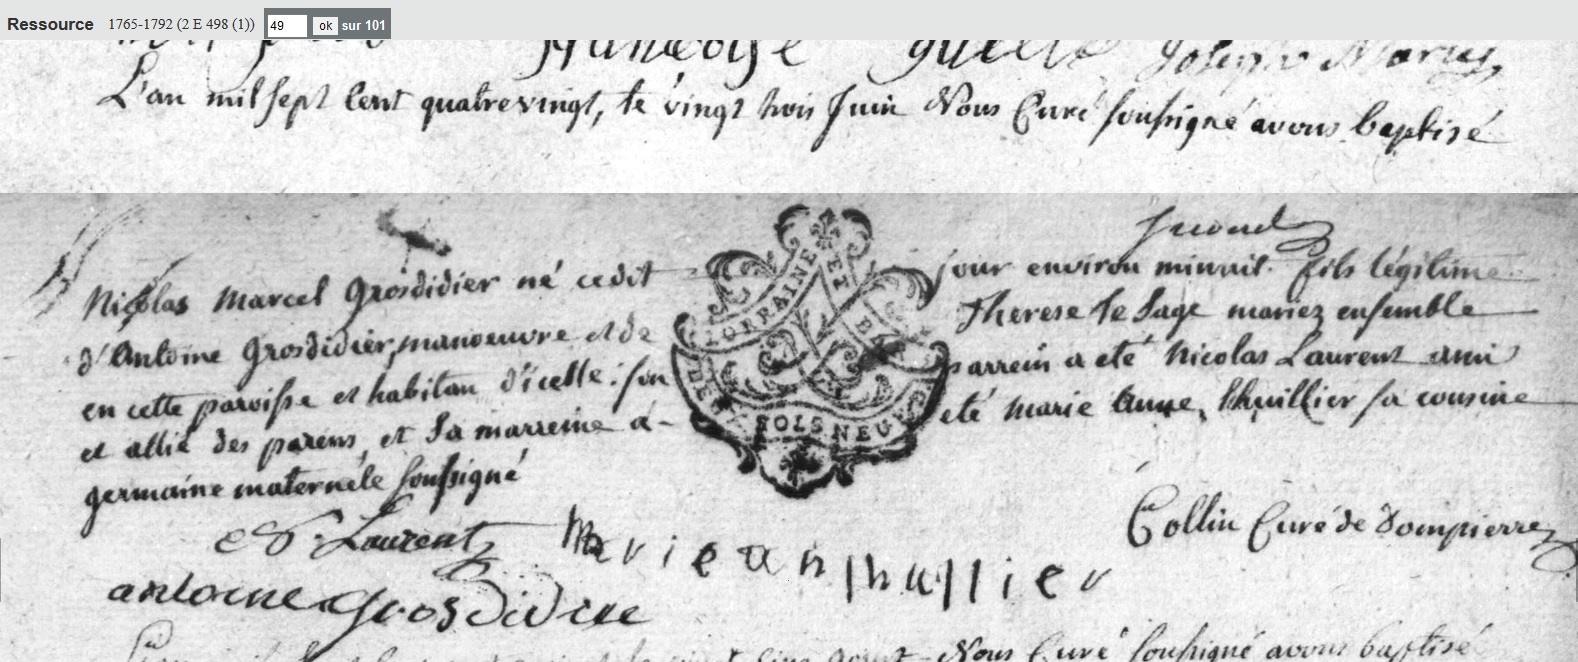 Ressource 1765-1792 (2 E 498 (1)) 49 ok sur 101
francoise Joseph Marin
L'an mil sept cent quatrevingt, le vingt trois Juin Nous Curé soussigné avons baptisé
second
Nicolas Marcel Grosdidier né cedit jour environ minuit. fils légitime
d'Antoine Grosdidier, manoeuvre et de Therese le Sage mariez ensemble
en cette paroisse et habitan d'icelle. son parrein a eté Nicolas Laurent ami
et allié des parens, et sa marreine a eté Marie Anne, Lhuillier sa cousine
germaine maternele soussigné
LORRAINE ET BAR
DEUX SOLS NEUF DE
N. Laurent Marie an lhullier Collin Curé de Dompierre
antoine Grosdidier
Nous Curé soussigné avons baptisé